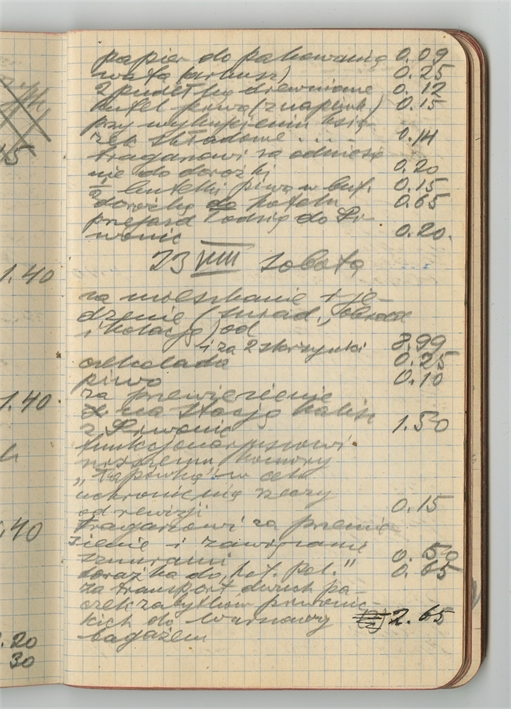 papier do pakowania 0.09
wata (arkusz) 0.25
2 pudełka drewniane 0.12
kufel piwa (z napiwk) 0.15
przy wykupieniu
składowe . . . 0.14
tragarzowi za odniesie
nie do dorożki 0.20
½ butelki piwa w buf. 0.15
dorożka do hotelu 0.65
przejazd łodzią do Pi-
wonic 0.20.
23 VIII sobota
za mieszkanie + je-
dzenie (śniad., obiad
i kolacja) od
i za 2 skrzynki 8.99
czekolada 0.25
piwo 0.10
za przewiezienie
na stację Kalisz
z Piwonic 1.50
funkcjonariuszowi
komory
"łapówka" w celu
uchronienia rzeczy
od rewizji 0.15
tragarzowi za przenie
sienie i zawiązanie
sznurami 0.50
dorożka do "hot. Pol." 0.65
za transport dwuch pa-
czek zabytków piwonic-
kich do Warszawy 2.65
bagażem
1.40
1.40
.40
.20
30